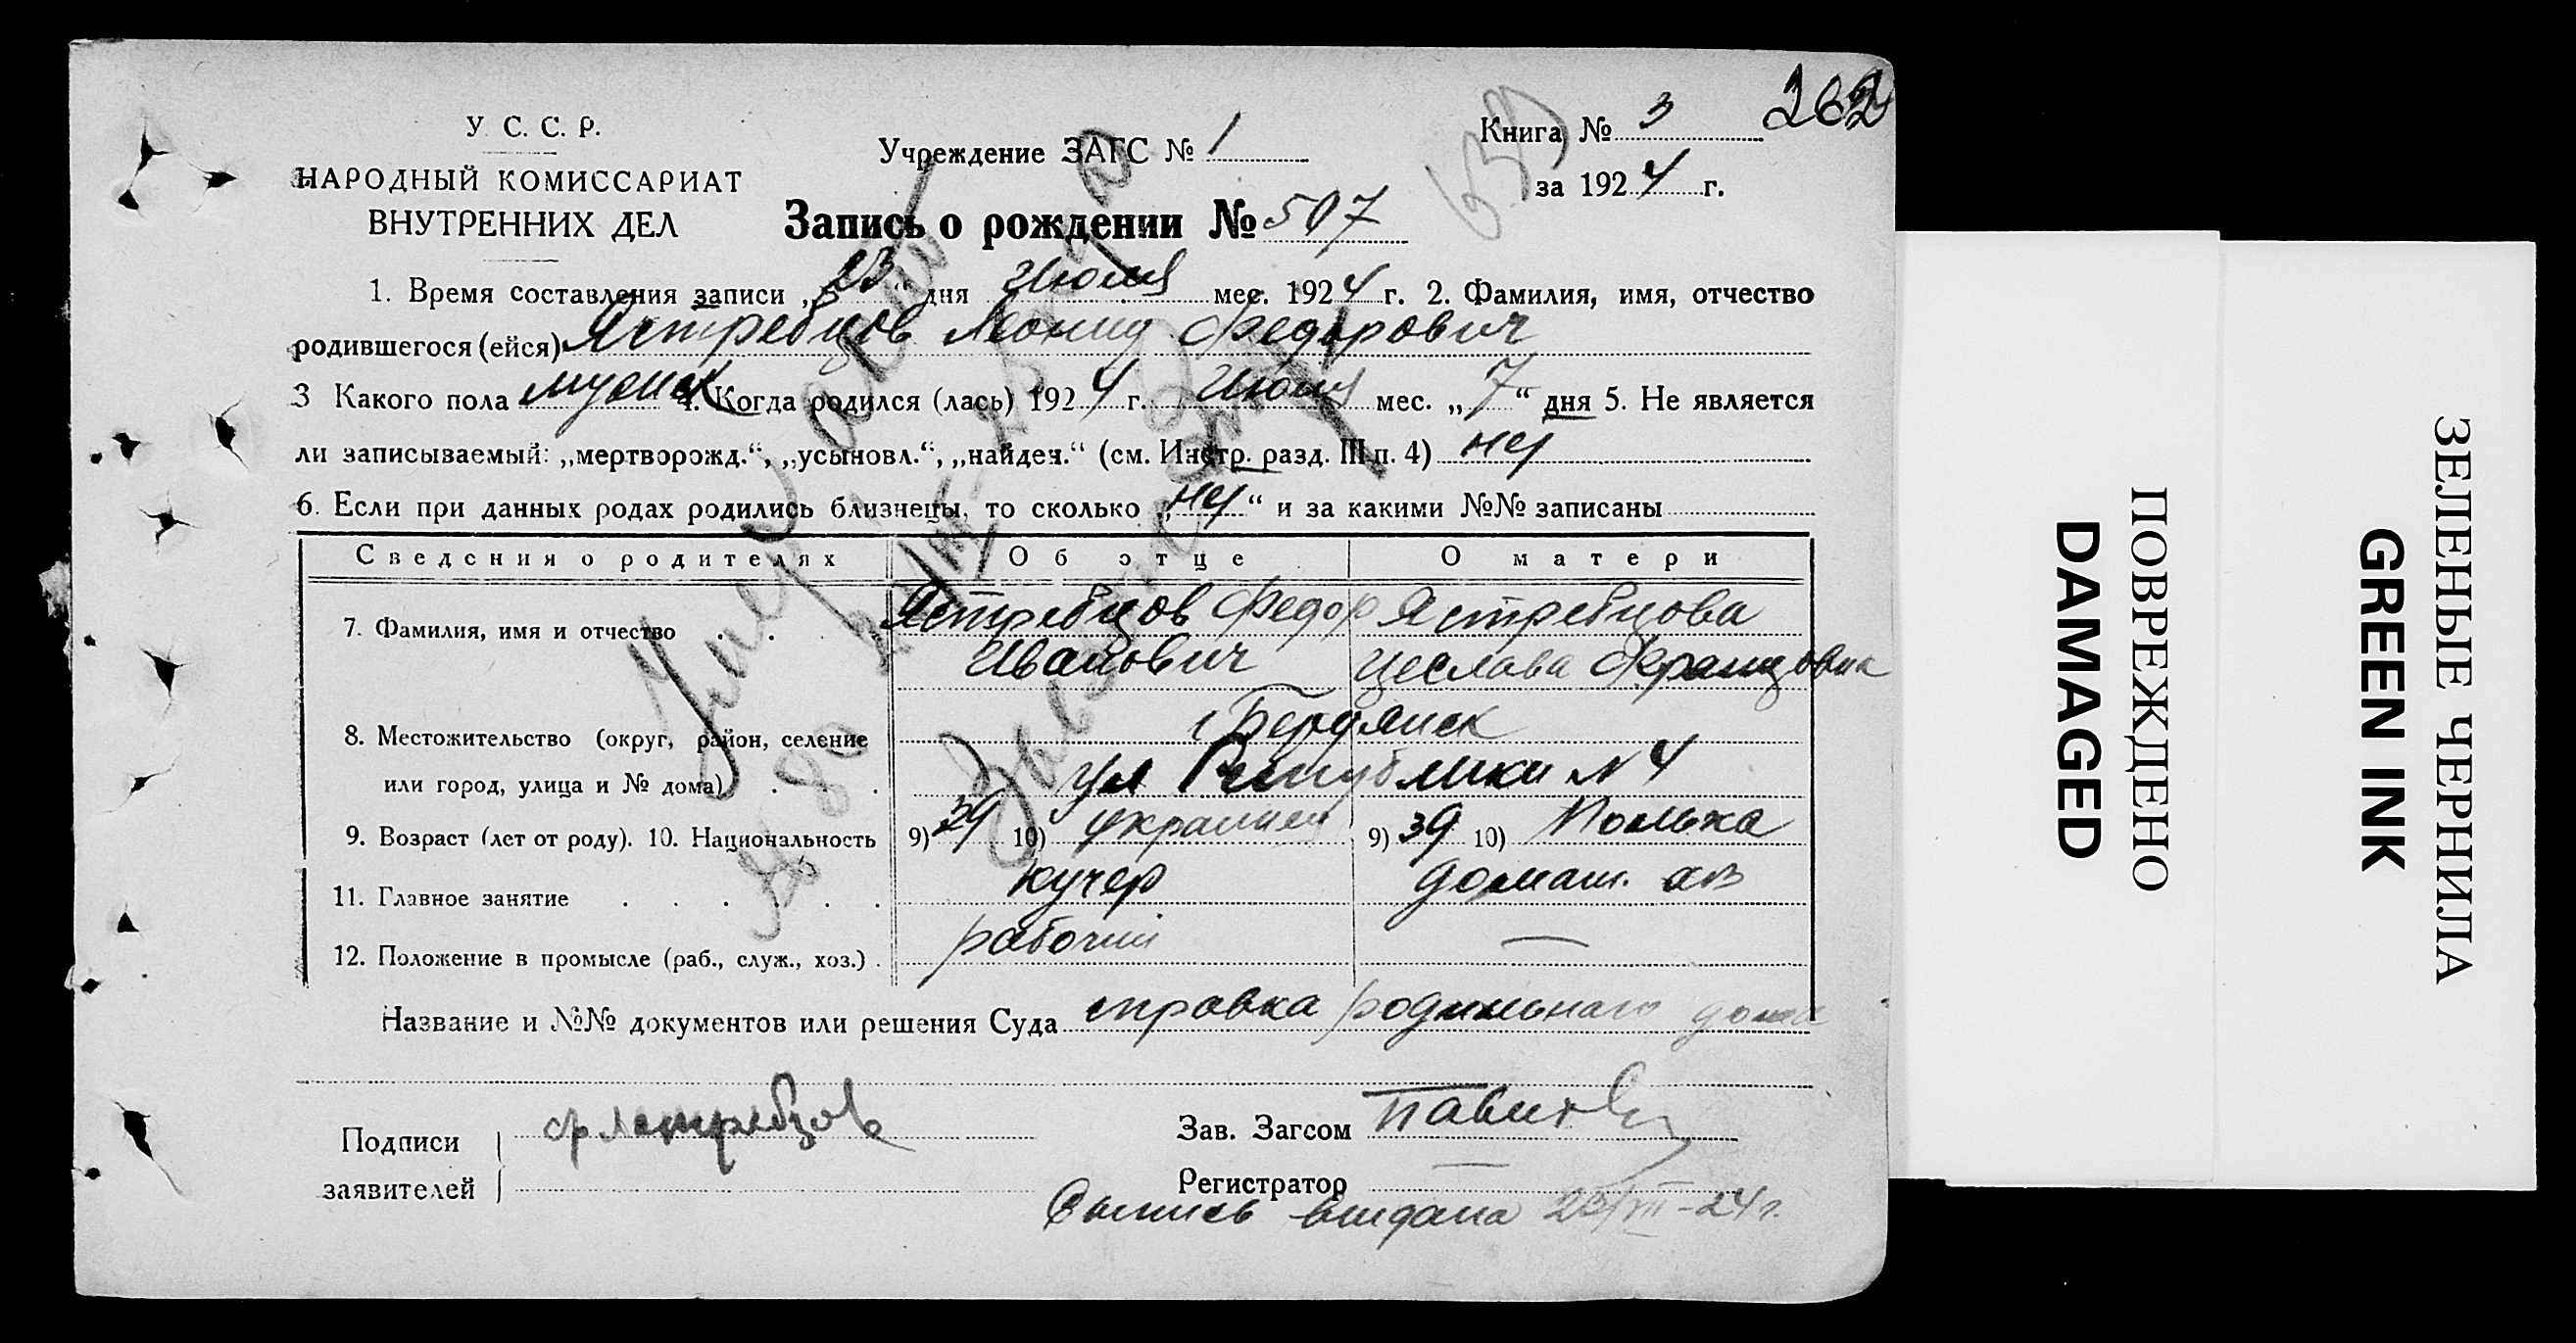 262
У. С. С. Р.
НАРОДНЫЙ КОМИССАРИАТ
ВНУТРЕННИХ ДЕЛ
Учреждение ЗАГС № 1
Книга № 3
за 1924 г.
Запись о рождении № 507
1. Время составления записи „23“ дня Июля мес. 1924 г. 2. Фамилия, имя, отчество
родившегося (ейся) Ястребцов Леонид Федорович
3 Какого пола мужск 4. Когда родился (лась) 1924 г. Июля мес. „7“ дня 5. Не является
ли записываемый: „мертворожд.“, „усыновл.“, „найден.“ (см. Инстр. разд. III п. 4) нет
6. Если при данных родах родились близнецы, то сколько „нет“ и за какими №№ записаны
Сведения о родителях Об отце О матери
7. Фамилия, имя и отчество Ястребцов Федор Ястребцова
Иванович Цеслава Францовна
8. Местожительство (округ, район, селение г Бердянск
или город, улица и № дома) ул Республики N 4
9. Возраст (лет от роду). 10. Национальность 9) 10) украинец 9) 39 10) Полька
11. Главное занятие кучер домаш. хоз
12. Положение в промысле (раб., служ., хоз.) рабочий —
Название и №№ документов или решения Суда справка родильнаго дома
Подписи
заявителей
Ф Ястребцов
Зав. Загсом
Регистратор —
Выпись выдана 23/VII-24 г.
ПОВРЕЖДЕНО
DAMAGED
ЗЕЛЕНЫЕ ЧЕРНИЛА
GREEN INK